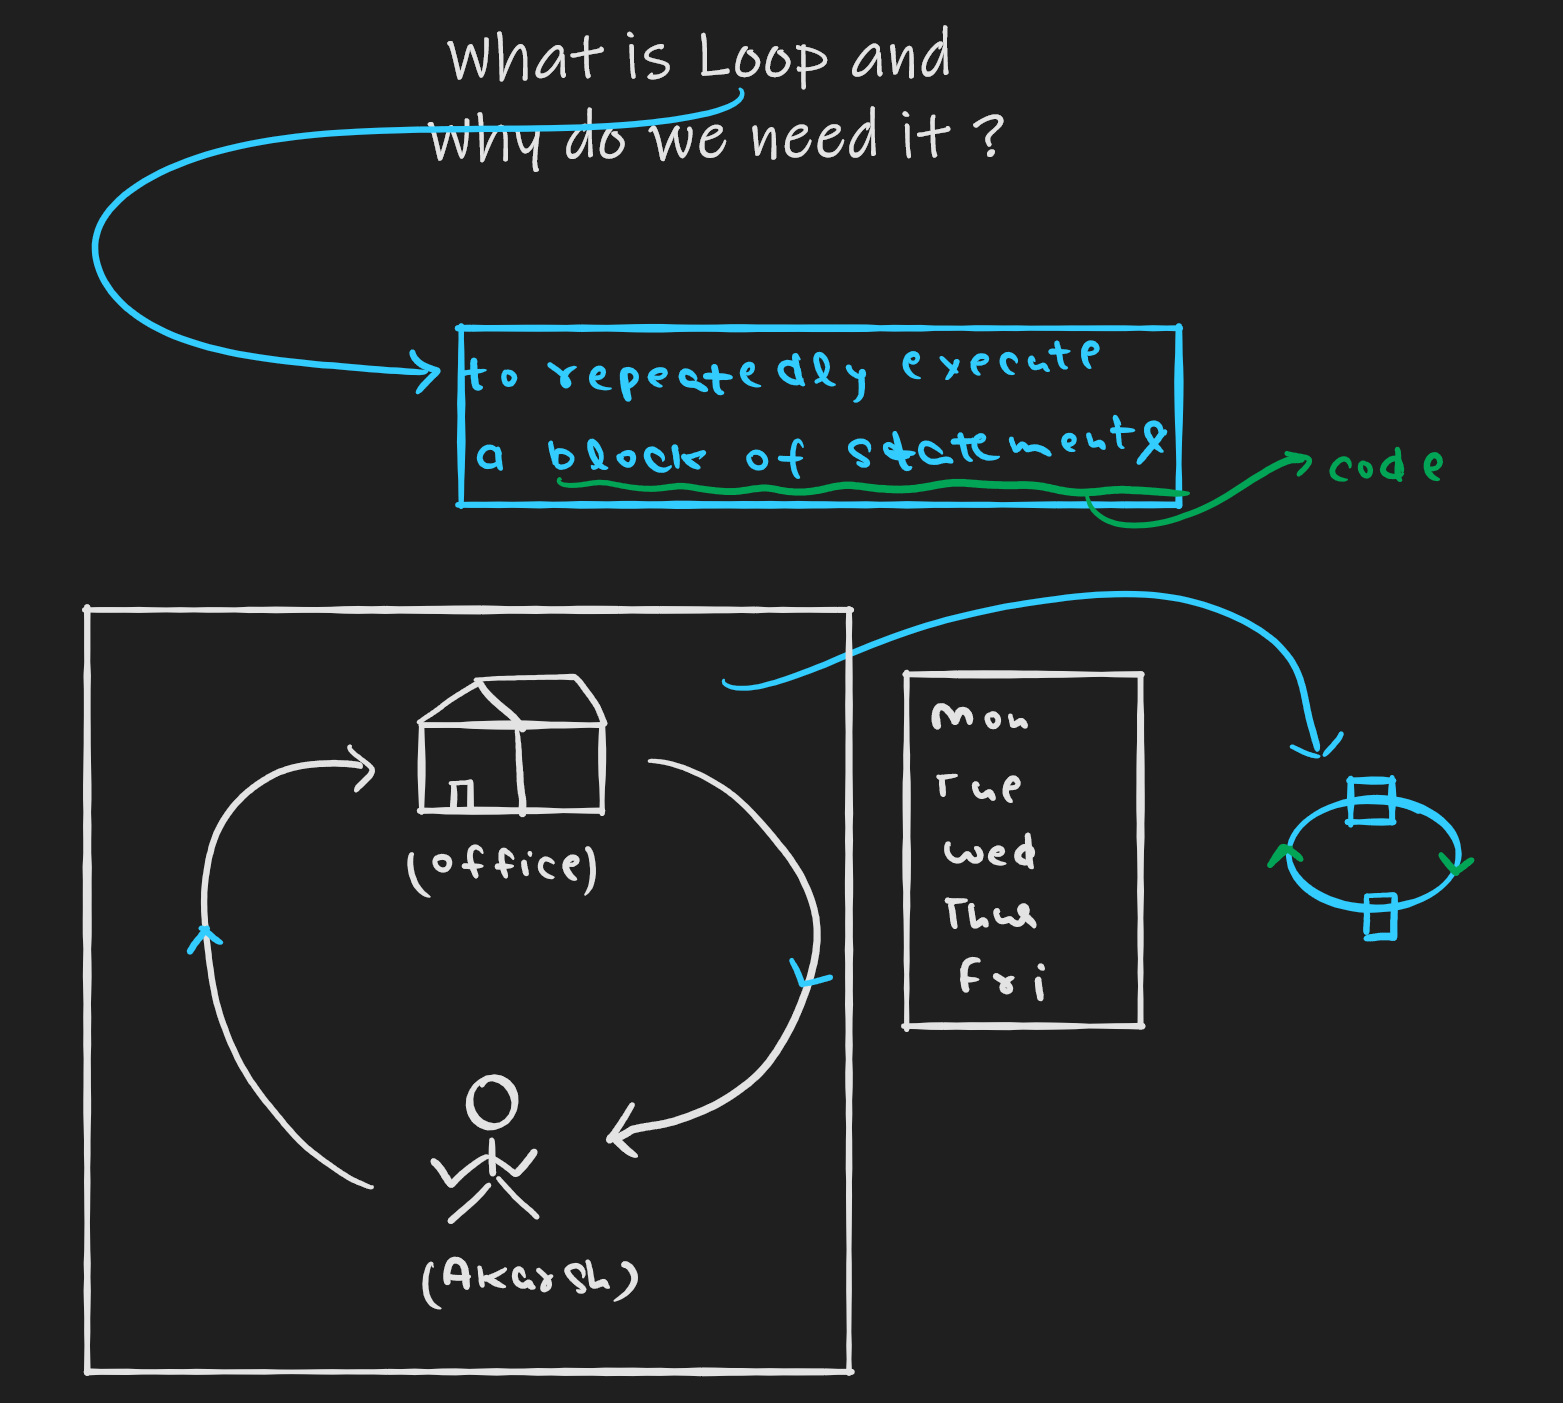 What is Loop and
Why do we need it ?
to repeatedly execute
a block of statements
code
(office)
Mon
Tue
Wed
Thus
Fri
(Akarsh)